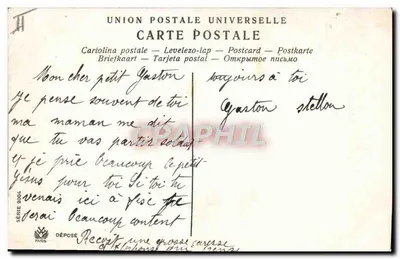 UNION POSTALE UNIVERSELLE
CARTE POSTALE
Cartolina postale — Levelezo-lap — Postcard — Postkarte
Briefkaart — Tarjeta postal — Открытое письмо
Mon cher petit Gaston
Je pense souvent de toi
ma maman me dit
que tu vas partir soldat
et je prie beaucoup le petit
Jésus pour toi Si toi tu
venais ici à
serai beaucoup content
Reçoit une grosse caresse
toujours à toi
Gaston
SÉRIE
PARIS
DÉPOSÉ